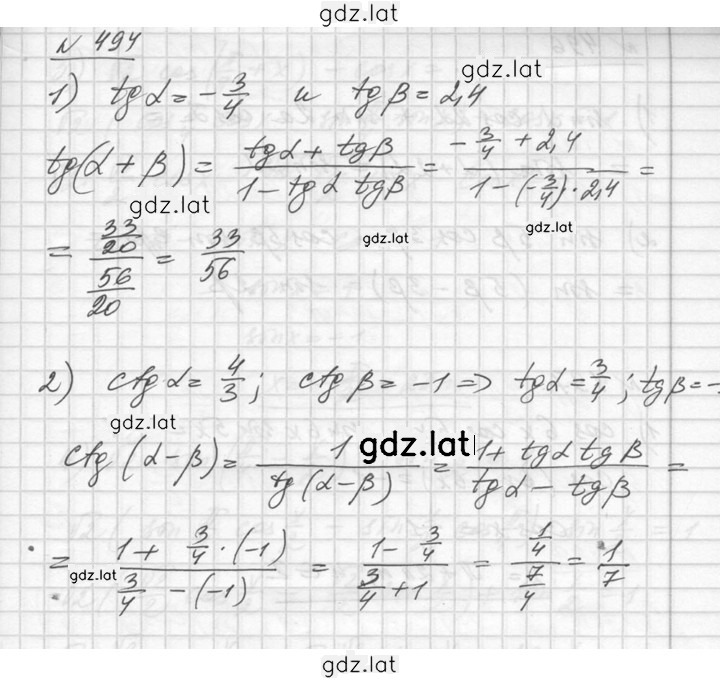 gdz.lat
№ 494
gdz.lat
1) tg α = -3/4 и tg β = 2,4
tg(α + β) = (tg α + tg β)/(1 - tg α tg β) = (-3/4 + 2,4)/(1 - (-3/4) · 2,4) =
gdz.lat
gdz.lat
= (33/20)/(56/20) = 33/56
2) ctg α = 4/3; ctg β = -1 => tg α = 3/4; tg β = -
gdz.lat
gdz.lat
ctg(α - β) = 1/(tg(α - β)) = (1 + tg α tg β)/(tg α - tg β) =
= (1 + 3/4 · (-1))/(3/4 - (-1)) = (1 - 3/4)/(3/4 + 1) = (1/4)/(7/4) = 1/7
gdz.lat
gdz.lat